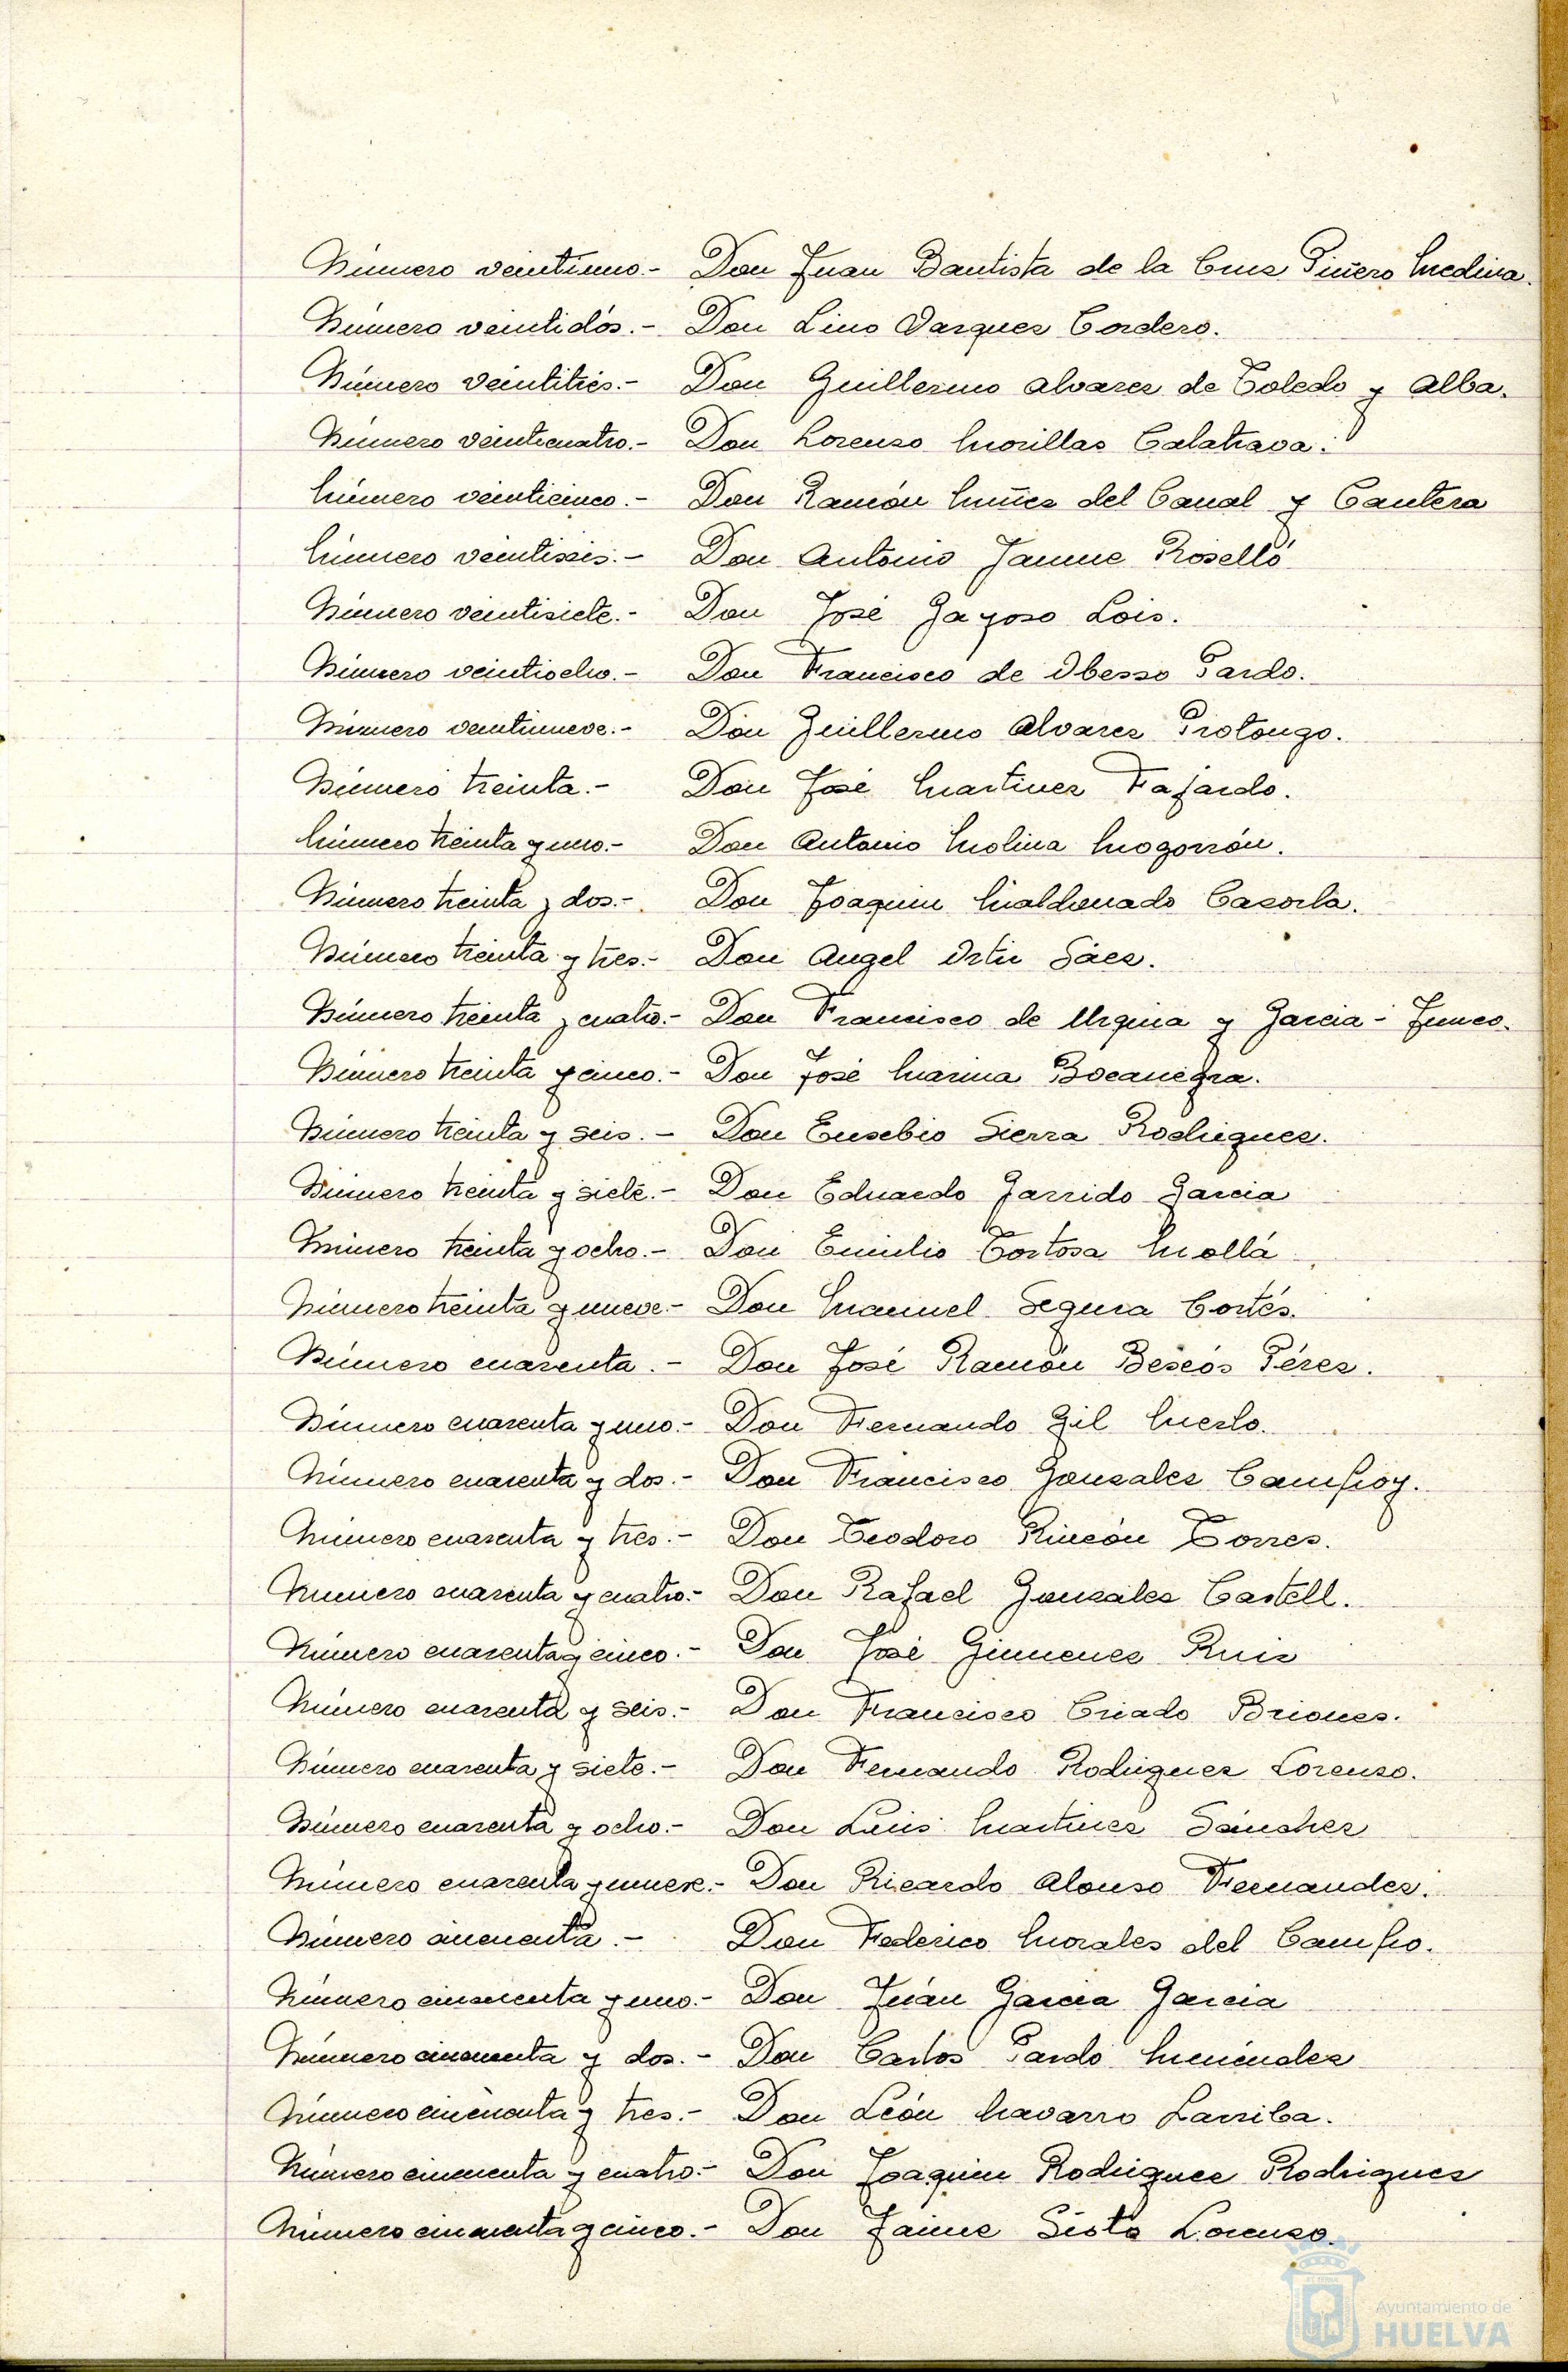 Número veintiuno.- Don Juan Bautista de la Cruz Piñero Medina.
Número veintidós.- Don Lino Vazquez Cordero.
Número veintitrés.- Don Guillermo Alvarez de Toledo y Alba.
Número veinticuatro.- Don Lorenzo Morillas Calatrava.
Número veinticinco.- Don Ramón Nuñez del Canal y Cantera
Número veintiseis.- Don Antonio Jaume Roselló
Número veintisiete.- Don José Gayoso Lois.
Número veintiocho.- Don Francisco de Obesso Pardo.
Número veintinueve.- Don Guillermo Alvarez Prolongo.
Número treinta.- Don José Martinez Fajardo.
Número treinta y uno.- Don Antonio Molina Mogorrón.
Número treinta y dos.- Don Joaquin Maldonado Cazorla.
Número treinta y tres.- Don Angel Ortiz Sáez.
Número treinta y cuatro.- Don Francisco de Urquia y Garcia-Junco.
Número treinta y cinco.- Don José Marina Bocanegra.
Número treinta y seis.- Don Eusebio Sierra Rodriguez.
Número treinta y siete.- Don Eduardo Garrido Garcia
Número treinta y ocho.- Don Emilio Tortosa Mollá
Número treinta y nueve.- Don Manuel Segura Cortés.
Número cuarenta.- Don José Ramón Bescós Pérez.
Número cuarenta y uno.- Don Fernando Gil Merlo.
Número cuarenta y dos.- Don Francisco Gonzalez Campoy.
Número cuarenta y tres.- Don Teodoro Rincón Torres.
Número cuarenta y cuatro.- Don Rafael Gonzalez Castell.
Número cuarenta y cinco.- Don José Gimenez Ruiz
Número cuarenta y seis.- Don Francisco Criado Briones.
Número cuarenta y siete.- Don Fernando Rodriguez Lorenzo.
Número cuarenta y ocho.- Don Luis Martinez Sánchez
Número cuarenta y nueve.- Don Ricardo Alonso Fernandez.
Número cincuenta.- Don Federico Morales del Campo.
Número cincuenta y uno.- Don Juán Garcia Garcia
Número cincuenta y dos.- Don Carlos Pardo Menéndez
Número cincuenta y tres.- Don León Navarro Larriba.
Número cincuenta y cuatro.- Don Joaquin Rodriguez Rodriguez
Número cincuenta y cinco.- Don Jaime Sisto Lorenzo.
Ayuntamiento de
HUELVA